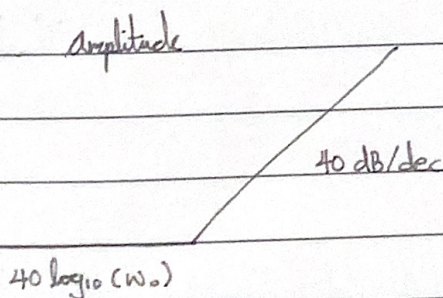 amplitude
40 dB/dec
40 log₁₀ (ω₀)